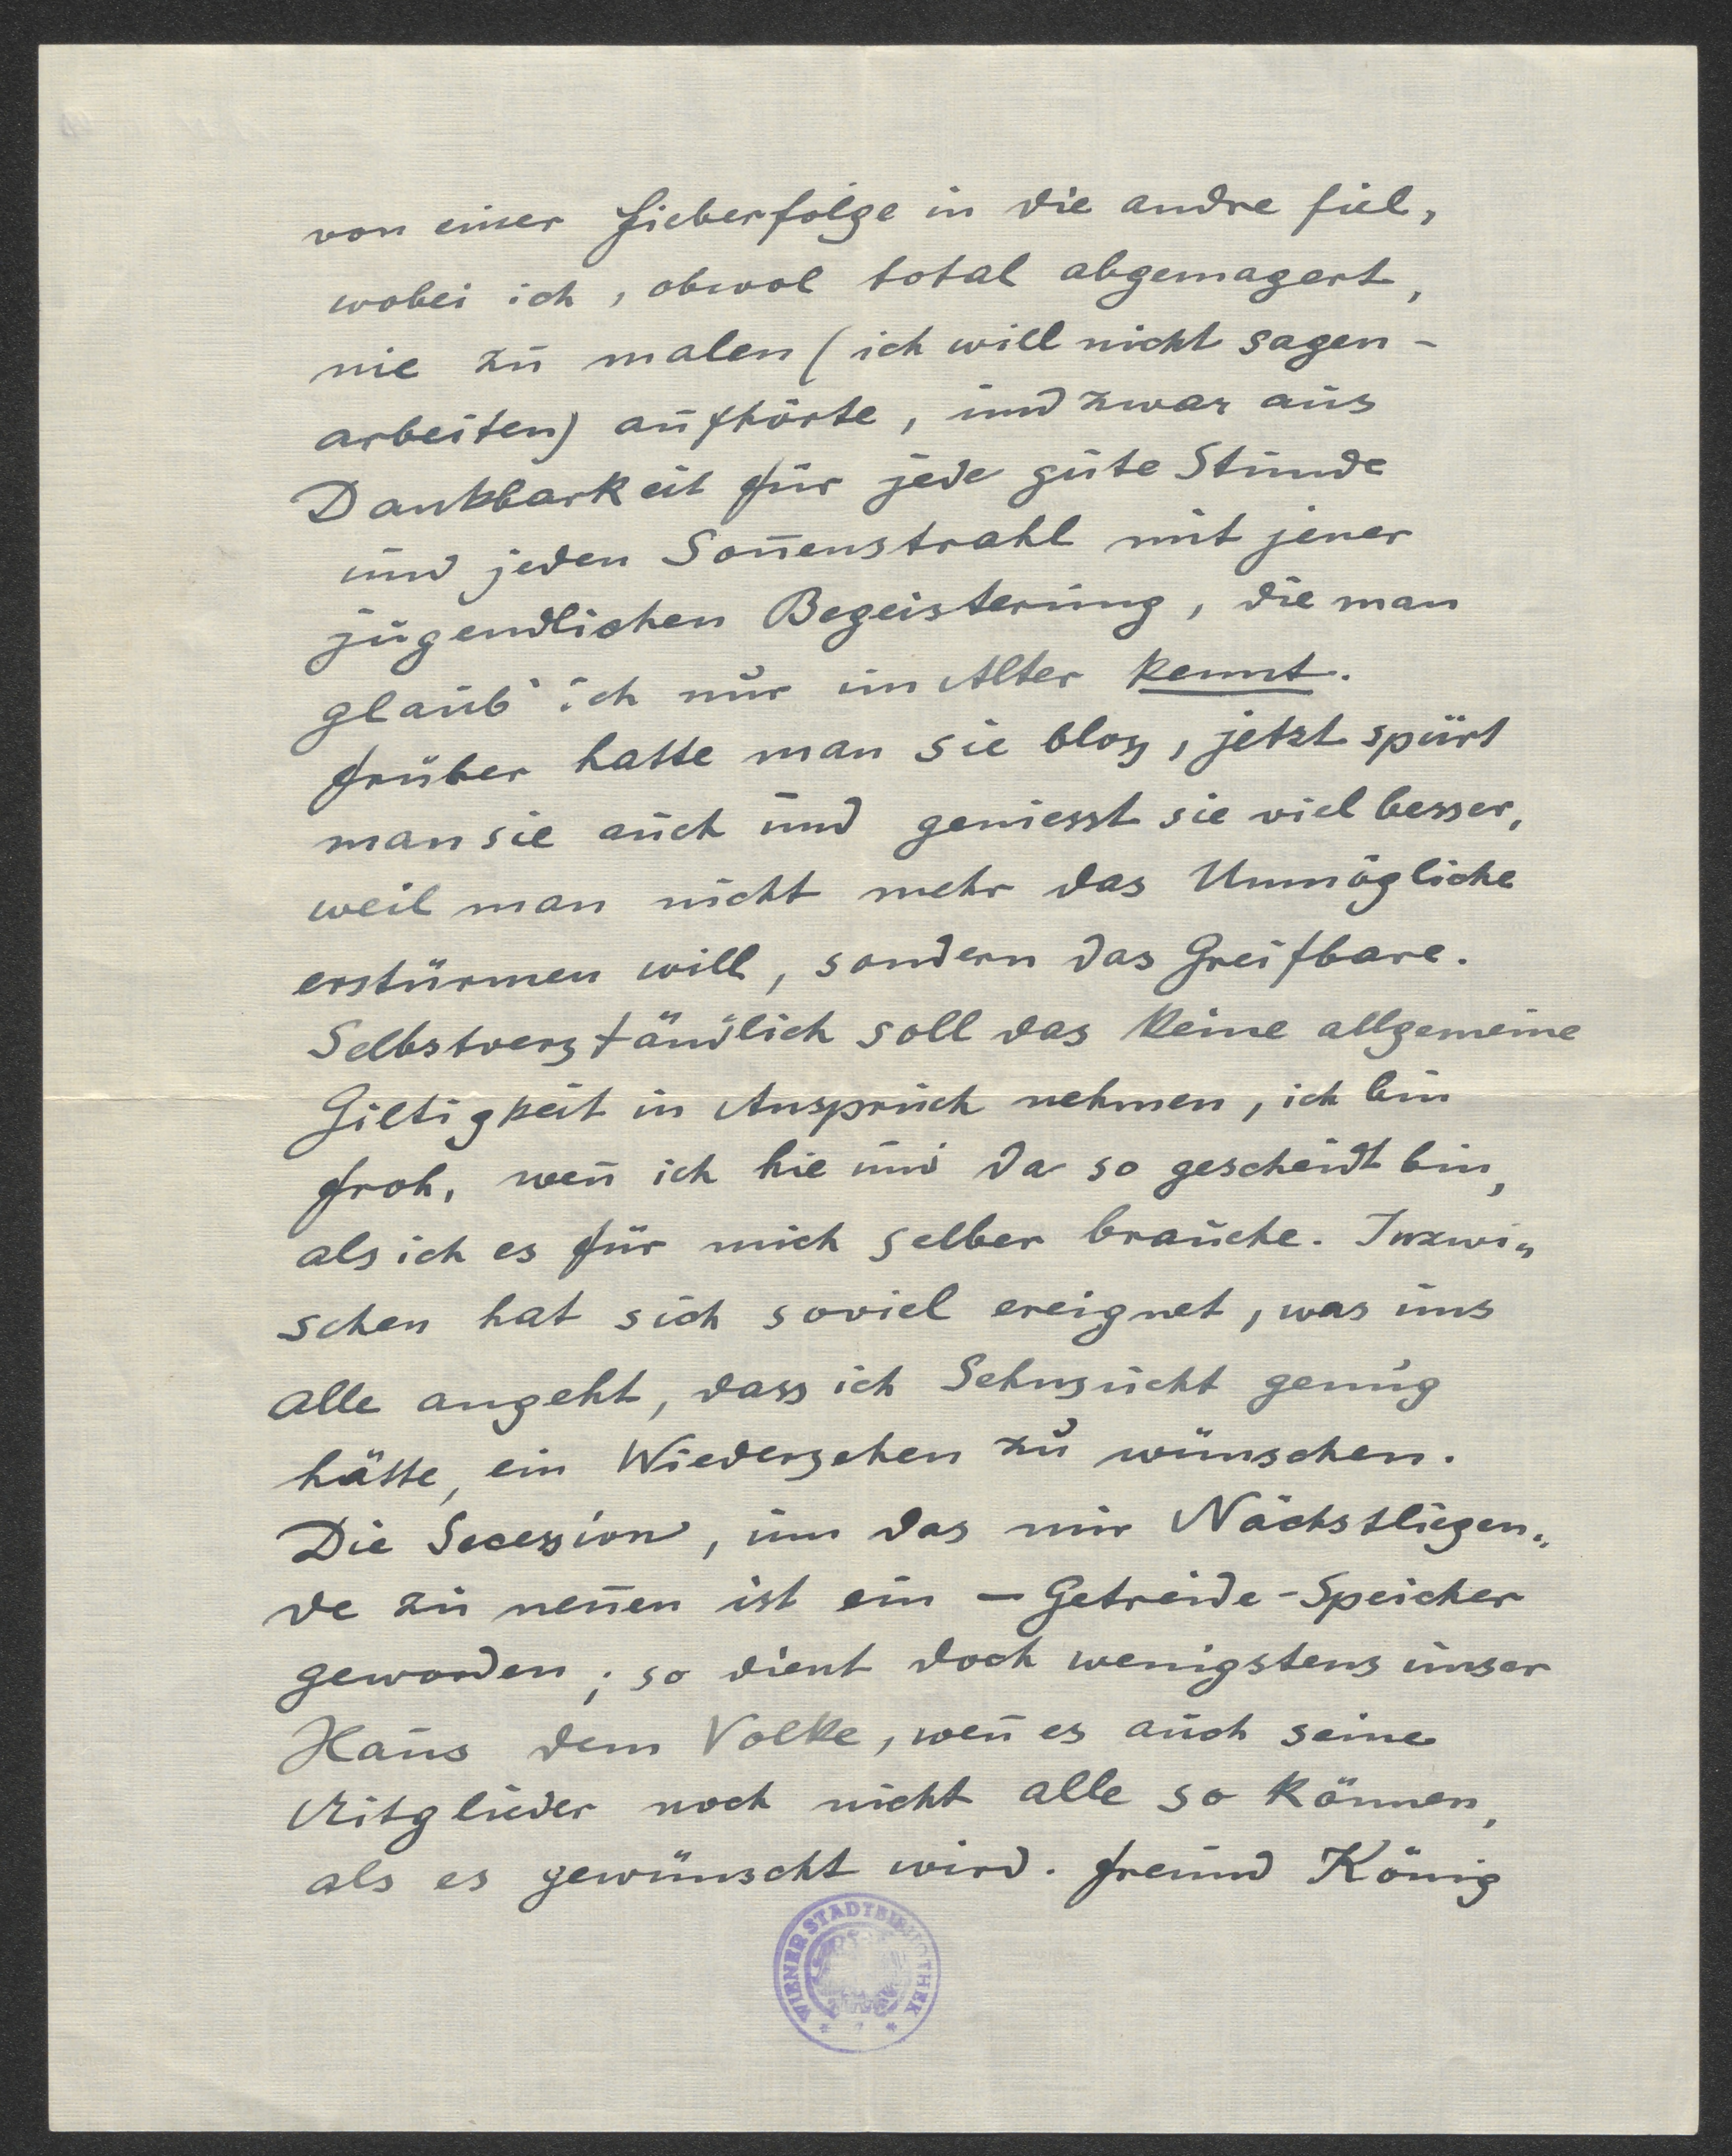 von einer Fieberfolge in die andre fiel,
wobei ich, obwol total abgemagert,
nie zu malen (ich will nicht sagen -
arbeiten) aufhörte, und zwar aus
Dankbarkeit für jede gute Stunde
und jeden Son̄enstrahl mit jener
jugendlichen Begeisterung, die man
glaub' ich nur im Alter kennt.
Früher hatte man sie blos, jetzt spürt
man sie auch und geniesst sie viel besser,
weil man nicht mehr das Unmögliche
erstürmen will, sondern das Greifbare.
Selbstverständlich soll das keine allgemeine
Giltigkeit in Anspruch nehmen, ich bin
froh, wen̄ ich hie und da so gescheidt bin,
als ich es für mich selber brauche. Inzwi„
schen hat sich soviel ereignet, was uns
alle angeht, dass ich Sehnsucht genug
hätte, ein Wiedersehen zu wünschen.
Die Secession, um das mir Nächstliegen„
de zu nen̄en ist ein — Getreide-Speicher
geworden; so dient doch wenigstens unser
Haus dem Volke, wen̄ es auch seine
Mitglieder noch nicht alle so können,
als es gewünscht wird. Freund König
WIENER STADTBIBLIOTHEK